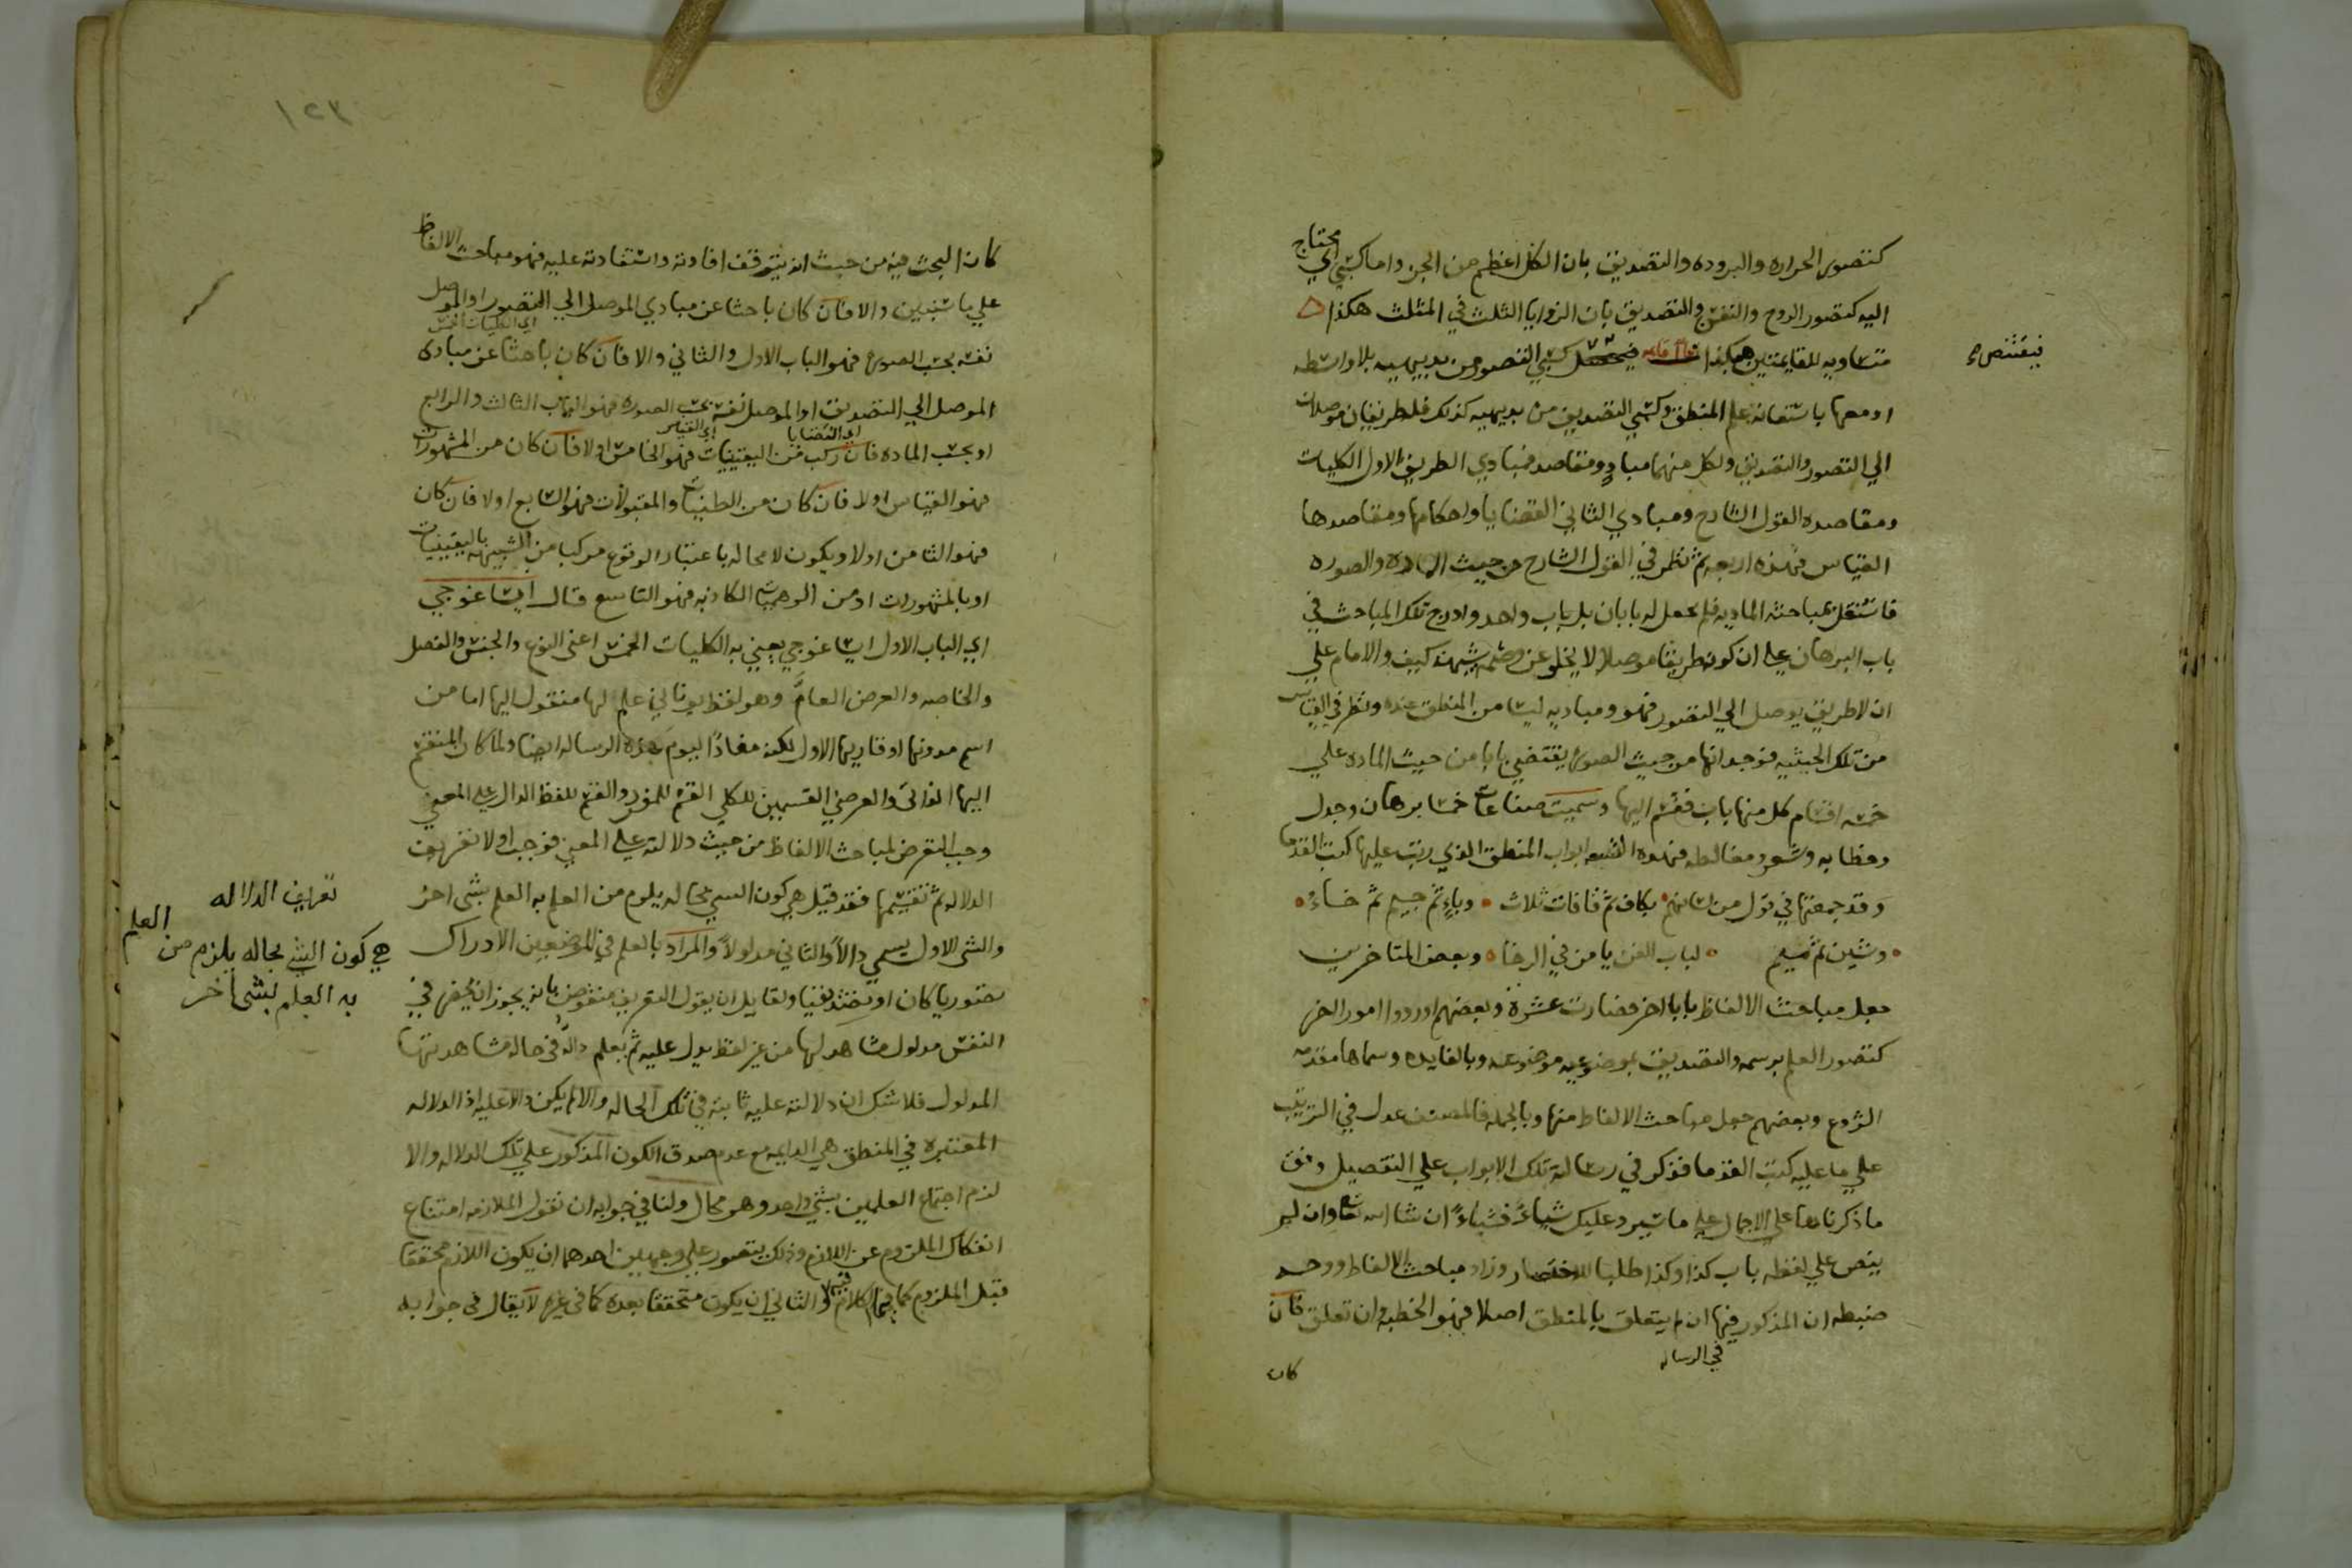 كتصور الحراره والبروده والتصديق بان الكل اعظم من الجزء واما كسبي اي محتاج
اليه كتصور الروح والنفس والتصديق بان الزوايا الثلث في المثلث هكذا
متساويه للقايمتين هكذا كسبي التصور من بديهييه بلا واسطه
او معها باستعانة علم المنطق وكسبي التصديق من بديهييه كذلك فلطريقان موصلان
الي التصور والتصديق ولكل منهما مباد ومقاصد فمبادي الطريق الاول الكليات
ومقاصده القول الشارح ومبادي الثاني القضايا واحكامها ومقاصدها
القياس فهذه اربعه ثم نظر في القول الشارح من حيث الماده والصوره
فاستقل مباحثه الماديه فلم يجعل له بابان بل باب واحد وادرج تلك المباحث في
باب البرهان علي ان كونه طريقا موصلا لا يخلو عن وصمة شبهة كيف والامام علي
ان لا طريق يوصل الي التصور فهو ومباديه ليسا من المنطق عنده ونظر في القياس
من تلك الحيثيه فوجد انها من حيث الصوره يقتضي بابا من حيث الماده علي
خمسه اقسام كل منها باب فقسم اليها وسميت صناعات خمسا برهان وجدل
وخطابه وشعر ومغالطه فهذه التسعه ابواب المنطق الذي رتبت عليها كتب القدما
وقد جمعتها في قول من بكاف ثم قافات ثلاث وباء ثم جيم ثم خاء
وشين ثم ميم لباب الفن يا من في الرخا وبعض المتاخرين
جعل مباحث الالفاظ بابا اخر فصارت عشرة وبعضهم اوردوا امور اخر
كتصور العلم برسمه والتصديق بموضوعيه موضوعه وبالفايده وسماها مقدمه
الشروع وبعضهم جعل مباحث الالفاظ منها وبالجمله فالمصنف عدل في الترتيب
علي ما عليه كتب القدما فذكر في رسالة تلك الابواب علي التفصيل وفق
ما ذكرناها علي الاجمال علي ما سيرد عليك شياء فشياء ان شا الله تعا وان لم
ينص علي لفظه باب كذا وكذا طلبا للاختصار وزاد مباحث الالفاظ ووجه
ضبطه ان المذكور فيها ان لم يتعلق بالمنطق اصلا فهو الخطبه وان تعلق فان
في الرساله
كان
١٢٣
كان البحث فيه من حيث انه يتوقف افادته واستفادته عليه فهو مباحث الالفاظ
علي ما ستبين والا فان كان باحثا عن مبادي الموصل الي التصور او الموصل
اي الكليات الخمس
نفسه بحسب الصورة فهو الباب الاول والثاني والا فان كان باحثا عن مبادى
الموصل الي التصديق او الموصل نفسه بحسب الصوره فهو الباب الثالث والرابع
اي القضايا اي القياس
او بحسب الماده فان ركب من اليقينيات فهو الخامس اولا فان كان من المشهورات
فهو القياس اولا فان كان من الظنيات والمقبولات فهو السابع اولا فان كان
فهو الثامن اولا ويكون لا محاله باعتبار الوقوع مركبا من الشبيهه باليقينيات
او بالمشهورات او من الوهميات الكاذبه فهو التاسع قال ايساغوجي
اي الباب الاول ايساغوجي يعني به الكليات الخمس اعنى النوع والجنس والفصل
والخاصه والعرض العام وهو لفظ يوناني علم لها منقول اليها اما من
اسم مدونها او قاريها الاول لكنه مفاد اليوم هذه الرساله ايضا ولما كان المنقسم
اليها الذاتى والعرضي القسيمين للكلي القسم للمفرد والقسم للفظ الدال علي المعني
وجب التعرض لمباحث الالفاظ من حيث دلالته علي المعني فوجب اولا تعريف
الدلاله ثم تقسيمها فقد قيل هي كون الشي بحاله يلزم من العلم به العلم بشى اخر
والشى الاول يسمي دالا والثاني مدلولا والمراد بالعلم في الموضعين الادراك
تصوريا كان او تصديقيا ولقايل ان يقول التعريف منقوض بانه يجوز ان يحضر في
النفس مدلول مشاهد لها من غير لفظ يدل عليه ثم يعلم داله في حاله مشاهدتها
المدلول فلا شك ان دلالته عليه ثابته في تلك الحاله والا لم يكن دالا عليه اذ الدلاله
المعتبره في المنطق هي الدايمه مع عدم صدق الكون المذكور علي تلك الدلاله والا
لزم اجتماع العلمين بشي واحد وهو محال ولنا في جوابه ان نقول الملازمه امتناع
انفكاك الملزوم عن اللازم وذلك يتصور علي وجهين احدهما ان يكون اللازم محققا
قبل الملزوم كما في الكلام والثاني ان يكون متحققا بعده كما في غيره لا يقال في جوابه
تعريف الدلاله
هي كون الشي بحاله يلزم من العلم
به العلم بشى اخر